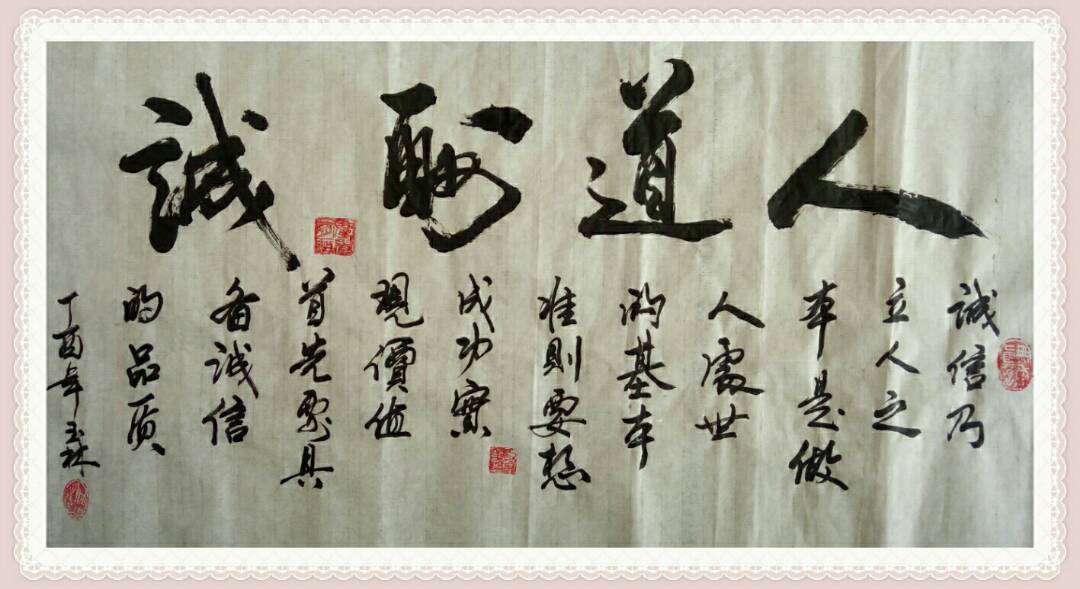 人道酬誠
誠信乃
立人之
本是做
人處世
的基本
准則要想
成功實
現價值
首先要具
备誠信
的品质
丁酉年玉林